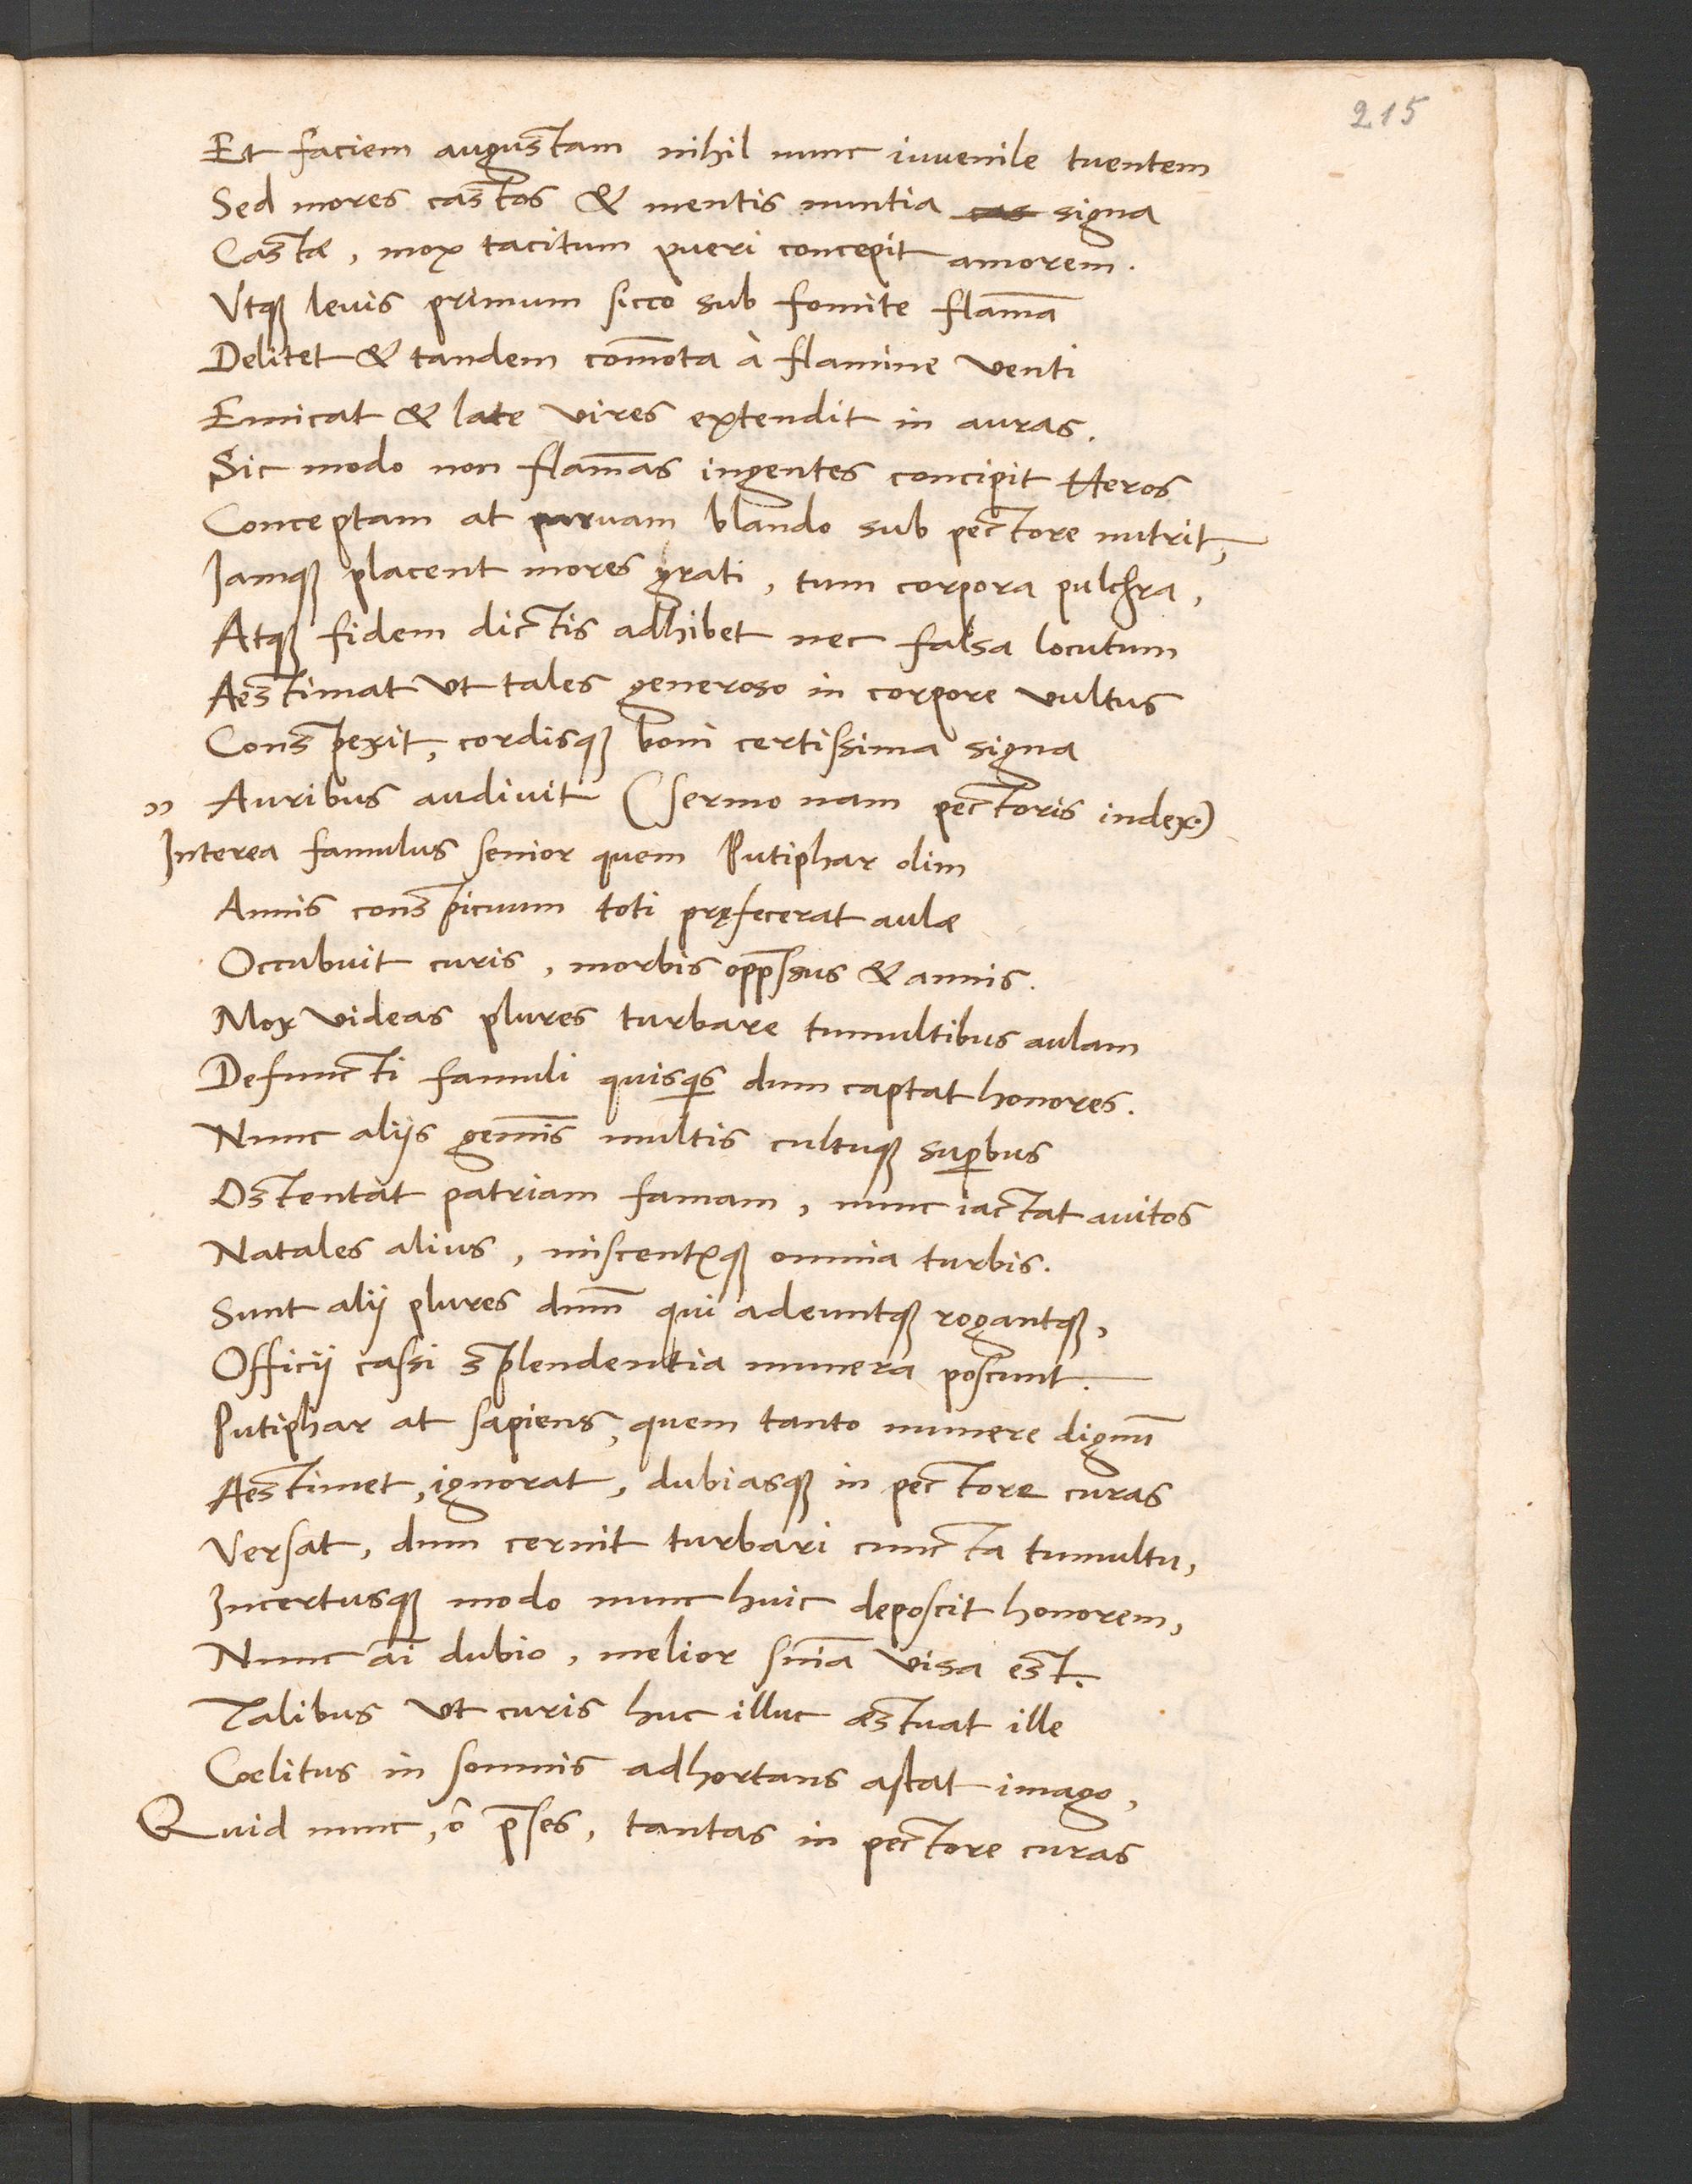 215
Et faciem augustam nihil nunc iuuenile tuentem
Sed mores castos & mentis nuntia cas signa
Castæ, mox tacitum pueri concepit amorem.
Vtq₃ leuis primum sicco sub fomite flam̄a
Delitet & tandem com̄ota à flamine venti
Emicat & late vires extendit in auras.
Sic modo non flam̄as ingentes concipit Heros
Conceptam at paruam blando sub pectore nutrit,
Iamq₃ placent mores grati, tum corpora pulchra,
Atq₃ fidem dictis adhibet nec falsa locutum
Aestimat vt tales generoso in corpore vultus
Conspexit, cordisq₃ boni certissima signa
" Auribus audiuit (sermo nam pectoris index.)
Interea famulus senior quem Putiphar olim
Annis conspicuum toti pręfecerat aulæ
Occubuit curis, morbis opp̄ssus & annis.
Mox videas plures turbare tumultibus aulam
Defuncti famuli quisq̢s dum captat honores.
Nunc aliis gem̄is multis cultuq₃ sup̄bus
Ostentat patriam famam, nunc iactat auitos
Natales alius, miscent᷑q₃ omnia turbis.
Sunt alij plures dn̄m qui adeuntq₃ rogantq₃,
Officij cassi splendentia munera poscunt.
Putiphar at sapiens, quem tanto munere dignū
Aestimet, ignorat, dubiasq₃ in pectore curas
Versat, dum cernit turbari cuncta tumultu,
Incertusq₃ modo nunc huic deposcit honorem,
Nunc ai dubio, melior sn̄ia visa est.
Talibus vt curis huc illuc æstuat ille
Cœlitus in somnis adhortans astat imago,
Quid nunc, ô p̄ses, tantas in pectore curas